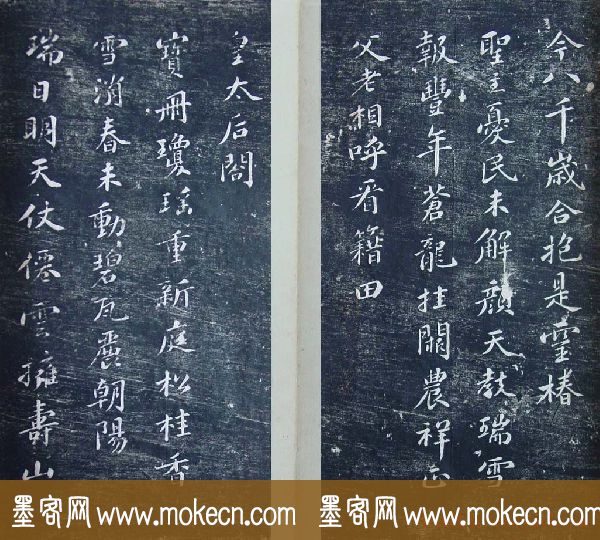 今八千歲合抱是靈椿
聖主憂民未解顏天教瑞雪
報豐年蒼龍挂闕農祥正
父老相呼看籍田
皇太后閤
寶冊瓊瑤重新庭松桂香
雪消春未動碧瓦麗朝陽
瑞日明天仗僊雲擁壽山
墨客网 www.mokecn.com
墨客网 www.mokecn.com